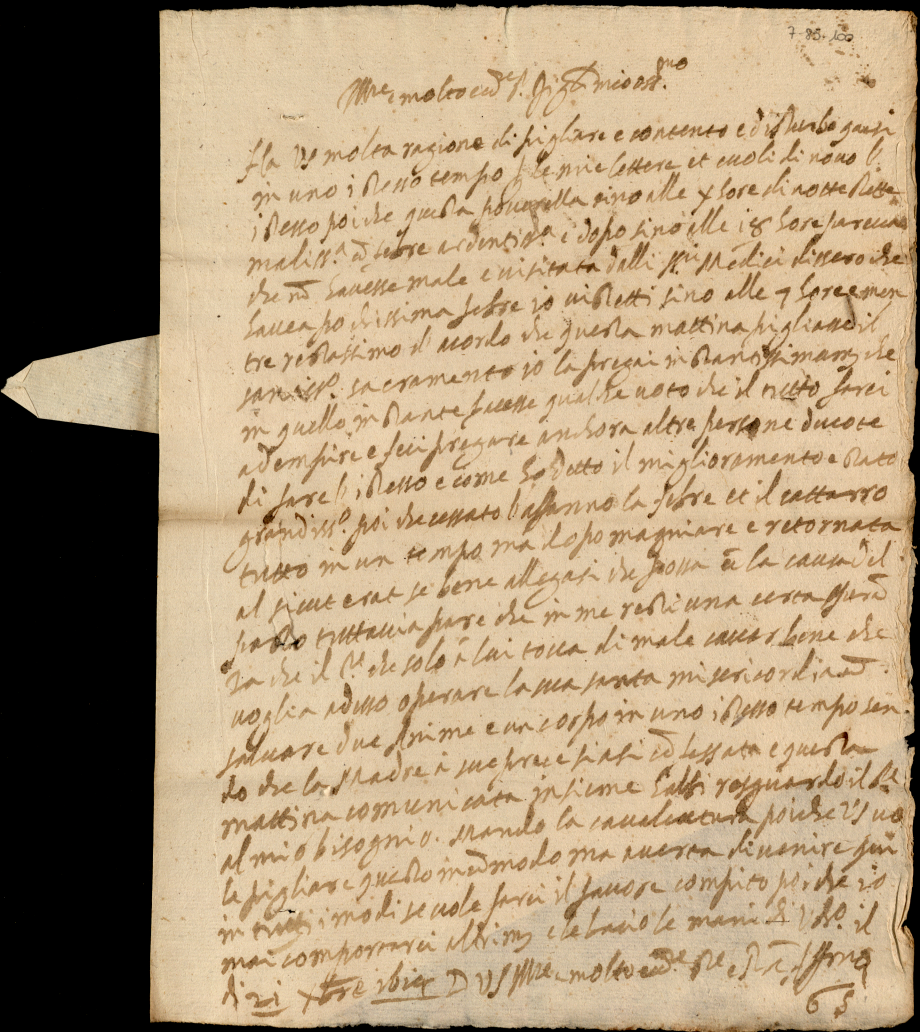 7-85-100
molto
Ha VS molta ragione di pigliare e contento e disturbo quasi
in uno istesso tempo le mie lettere et di novo l
istesso poi che questa poverella sino alle hore di notte stette
maliss.a febre ardentiss.a e dopo sino alle 18 hore pareva
che havesse male e visitata dalli ss.ri Medici dissero che
havea pochissima febre io vi stetti sino alle 7 hore e men
tre restassimo d acordo che questa mattina pigliasse il
santiss.o sacramento io la pregai che
in quello instante facesse qualche voto che il tutto farei
adempire e feci pregare anchora altre persone divote
di fare l istesso e come ho detto il miglioramento e stato
grandiss.o poi che cessato l affanno la febre et il cattarro
tutto in un tempo ma dopo magniare e retornata
al sicut erat se bene allegasi che possa la causa del
pasto tuttavia pare che in me resti una certa
za che il che solo a lui tocca di male cavar bene che
voglia adesso operare la sua santa misericordia
salvare due Anime e un corpo in uno istesso tempo sen
do che la Madre a sue prece siasi e questa
mattina comunicata insieme resguardo il
al mio bisognio. Mando la cavalcatura poi che VS vo
le pigliare questo incomodo ma averta di venire
in tutti i modi se vole farci il favore compito poi che io
mai comportarci e le bacio le mani di il
di 21 Xbre D VS molto